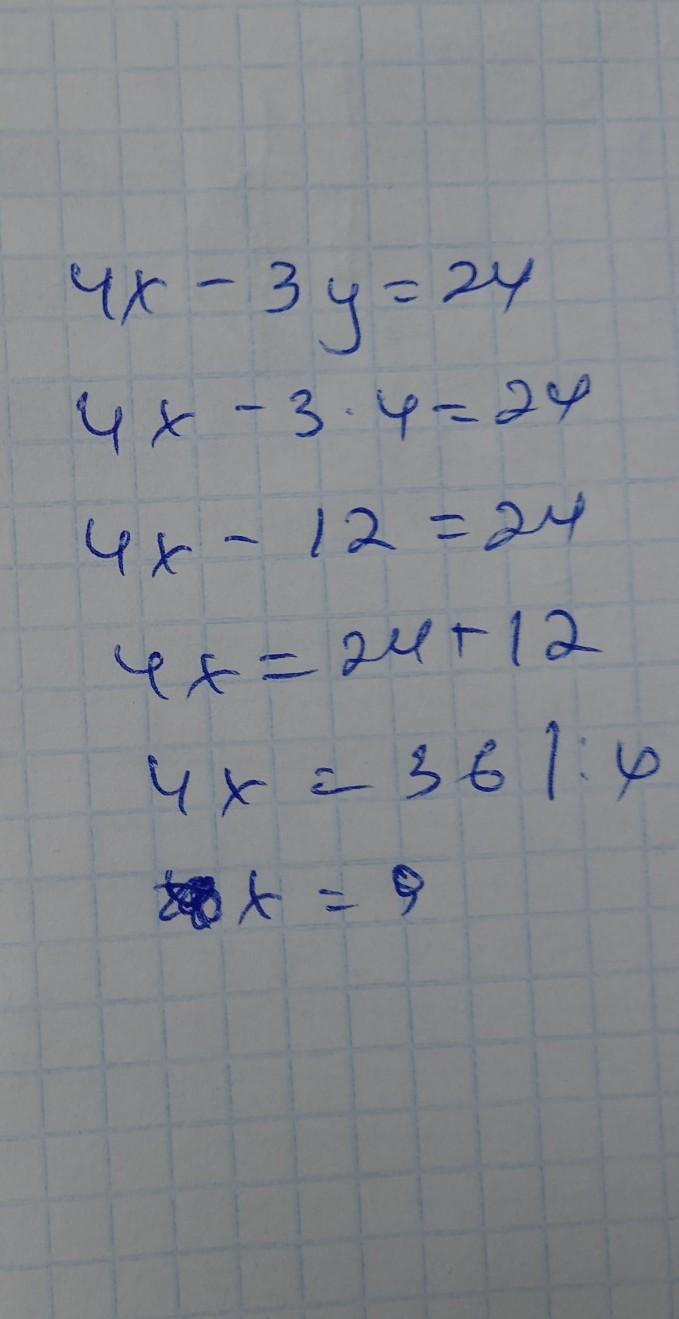 4x - 3y = 24
4x - 3 · 4 = 24
4x - 12 = 24
4x = 24 + 12
4x = 36 | : 4
x = 9